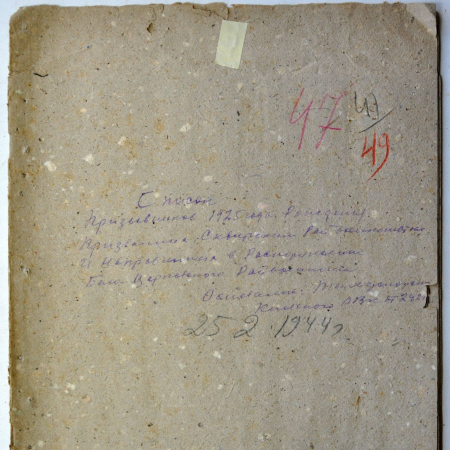 47 49
49
Список
Призывников 1925 года Рождения
Призванных Сквирским Райвоенкоматом
и направленных в Распоряжение
Бело Церковского Райвоенкомата
Основание: Телеграмма
Киевского ОВК
25 2. 1944 г